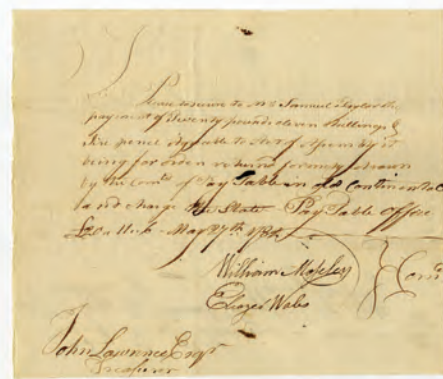 Please secure to Mr Samuel Taylor the
payment of Seventy pounds eleven Shillings &
five pence agreable to Act of Assembly it
being for orders returnd formerly drawn
by the Comtt of Pay Table in old Continental
and charge the State Pay Table Office
£70.11..5 May 27th 1782
William Moseley
Eleazer Wales
Comtt
John Lawrence Esqr
Treasurer